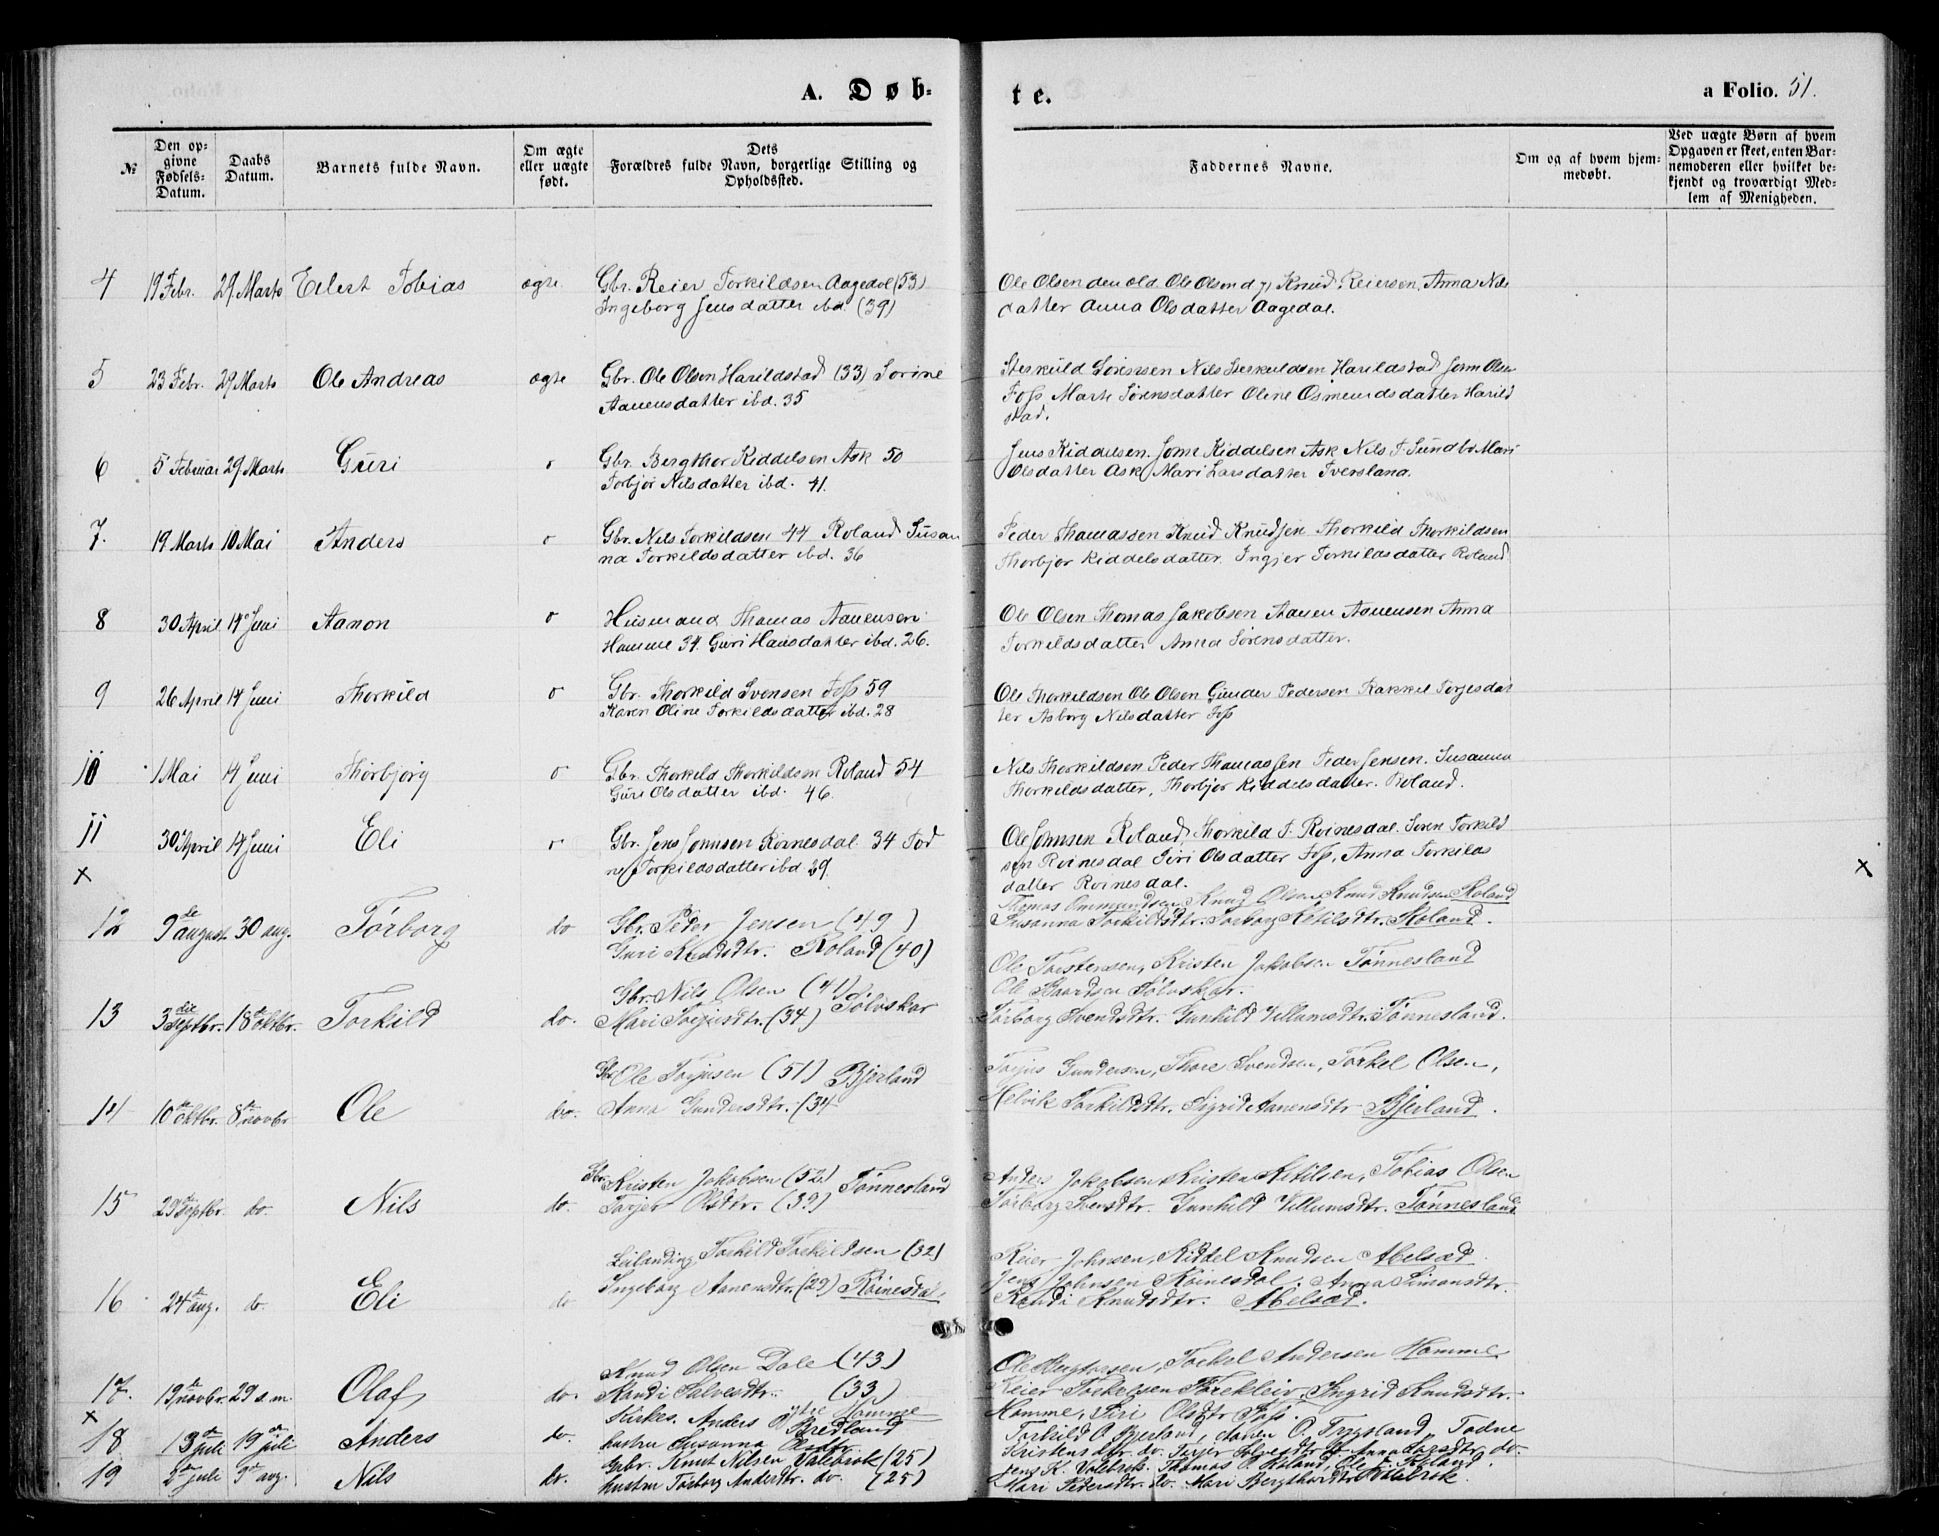 A. Døb-
te.
a Folio. 51.
No
Den op-
givne
Fødsels-
Datum.
Daabs
Datum.
Barnets fulde Navn.
Om ægte
eller uægte
født.
Dets
Forældres fulde Navn, borgerlige Stilling og
Opholdssted.
Faddernes Navne.
Om og af hvem hjem-
medøbt.
Ved uægte Børn af hvem
Opgaven er skeet, enten Bar-
nemoderen eller hvilket be-
kjendt og troværdigt Med-
lem af Menigheden.
4 19 Febr. 29 Marts Eilert Tobias ægte Gbr. Reier Torkildsen Aagedal (53)
Ingeborg Jensdatter ibd. (39)
Ole Olsen den old. Ole Olsen d y Knud Reiersen, Anna Nils
datter Anna Olsdatter Aagedal.
5 23 Febr. 29 Marts Ole Andreas ægte Gbr. Ole Olsen Harildstad (33) Sorine
Aanensdatter ibd. 35
Nils Harildstad Jorm Olsen
Foss Marte Sørensdatter Oline Osmundsdatter Harild
stad.
6 5 Februar 29 Marts Guri Gbr. Bergthor Kiddelsen Ask 50
Torbjør Nilsdatter ibd. 41.
Jens Kiddelsen. Jome Kiddelsen Ask Nils T. Sundbø Mari
Olsdatter Ask Mari Larsdatter Iversland.
7. 19 Marts 10 Mai Anders Gbr. Nils Torkildsen 44 Roland Susan
na Torkildsdatter ibd. 36
Peder Thomassen Knud Knudsen Thorkild Thorkildsen
Thorbjør Kiddelsdatter. Ingjer Torkildsdatter Roland
8 30 April 14 Juni Aanon Husmand Thomas Aanensen
Homme 34. Guri Hansdatter ibd. 26.
Ole Olsen Thomas Jakobsen Aanen Aanensen Anna
Torkildsdatter Anna Sørensdatter.
9 26 April 14 Juni Thorkild Gbr. Thorkild Svensen Foss 59
Karen Oline Torkildsdatter ibd. 28
Ole Thorkildsen Ole Olsen Gunder Pedersen Rakkel Torjesdat
ter Asborg Nilsdatter Foss
10 1 Mai 14 Juni Thorbjørg Gbr. Thorkild Thorkildsen Roland 54
Guri Olsdatter ibd. 46.
Nils Thorkildsen Peder Thomassen Peder Jensen. Susanna
Thorkildsdatter, Thorbjør Kiddelsdatter. Roland.
11 30 April 14 Juni Eli Gbr. Jens Jomnsen Roinesdal 34 Tod
ne Torkildsdatter ibd 29.
Ole Jomnsen Roland, Thorkild T. Roinesdal. Søren Torkild
sen Roinesdal Siri Olsdatter Foss, Anna Torkilds
datter Roinesdal.
x
x
12 9de august 30 aug. Tørborg do Gbr. Peder Jensen (49)
Guri Knudsdtr. Roland (40)
Thomas Ommundsen Knud Olsen Knud Knudsen Roland
Susanna Torkildsdtr. Torborg Ketilsdtr. Roland.
13 3die Septbr. 18de oktbr. Torkild do. Gbr. Nils Olsen (41)
Mari Torjusdtr. (34) Tølvskar
Ole Torstensen, Kristen Jakobsen Tønnesland
Ole Baardsen Tølvskar.
Tørborg Svendsdtr. Gunhild Villumsdtr. Tønnesland.
14 10de oktbr. 8de novbr Ole do. Gbr Ole Torjusen (51) Bjerland
Anna Gundersdtr. (34
Torjus Gundersen, Thore Svendsen, Torkel Olsen,
Helvik Torkildsdtr. Sigrid Aanensdtr Bjerland.
15 29de Septbr. do. Nils do. Gbr. Kristen Jakobsen (52) Tønnesland
Torjer Olsdtr. (39)
Anders Jakobsen Kristen Ketilsen, Tobias Olsen
Tørborg Svensdtr. Gunhild Villumsdtr. Tønnesland
16 24de aug. do. Eli do Leilænding Torkild Torkildsen (32)
Ingeborg Aanensdtr. (29) Røinesdal.
Reier Johnsen, Kiddel Knudsen Abelsæd.
Jens Johnsen Røinesdal. Anna Simonsdtr.
Randi Knudsdtr. Abelsæd.
17. 19de novbr. 29 s.m. Olaf do. Knud Olsen Dale (43)
Randi Salvesdtr. (33)
Homme
Ole Bergtorsen, Torkel Andersen Homme
Reier Torkelsen Torekleiv, Ingrid Knudsdtr.
Homme, Siri Olsdtr Foss.
x
18 13de juli 19de juli Anders do. Anders Bredland
hustru Susanna Olsdtr.
Torkild O. Bjerland, Aanen O. Trygsland, Todne
Kristensdtr. do. Torjer Salvesdtr & Anna Larsdtr. do.
19 2den juli 9de aug. Nils do. Gbr. Knut Nilsen Valebrok (25)
hustru Tørborg Andersdtr. do. (25)
Jens K. Valebrok. Thomas O. Roland, Ole T. Roland.
Mari Pedersdtr. do. Mari Bergthorsdtr Valebrok.